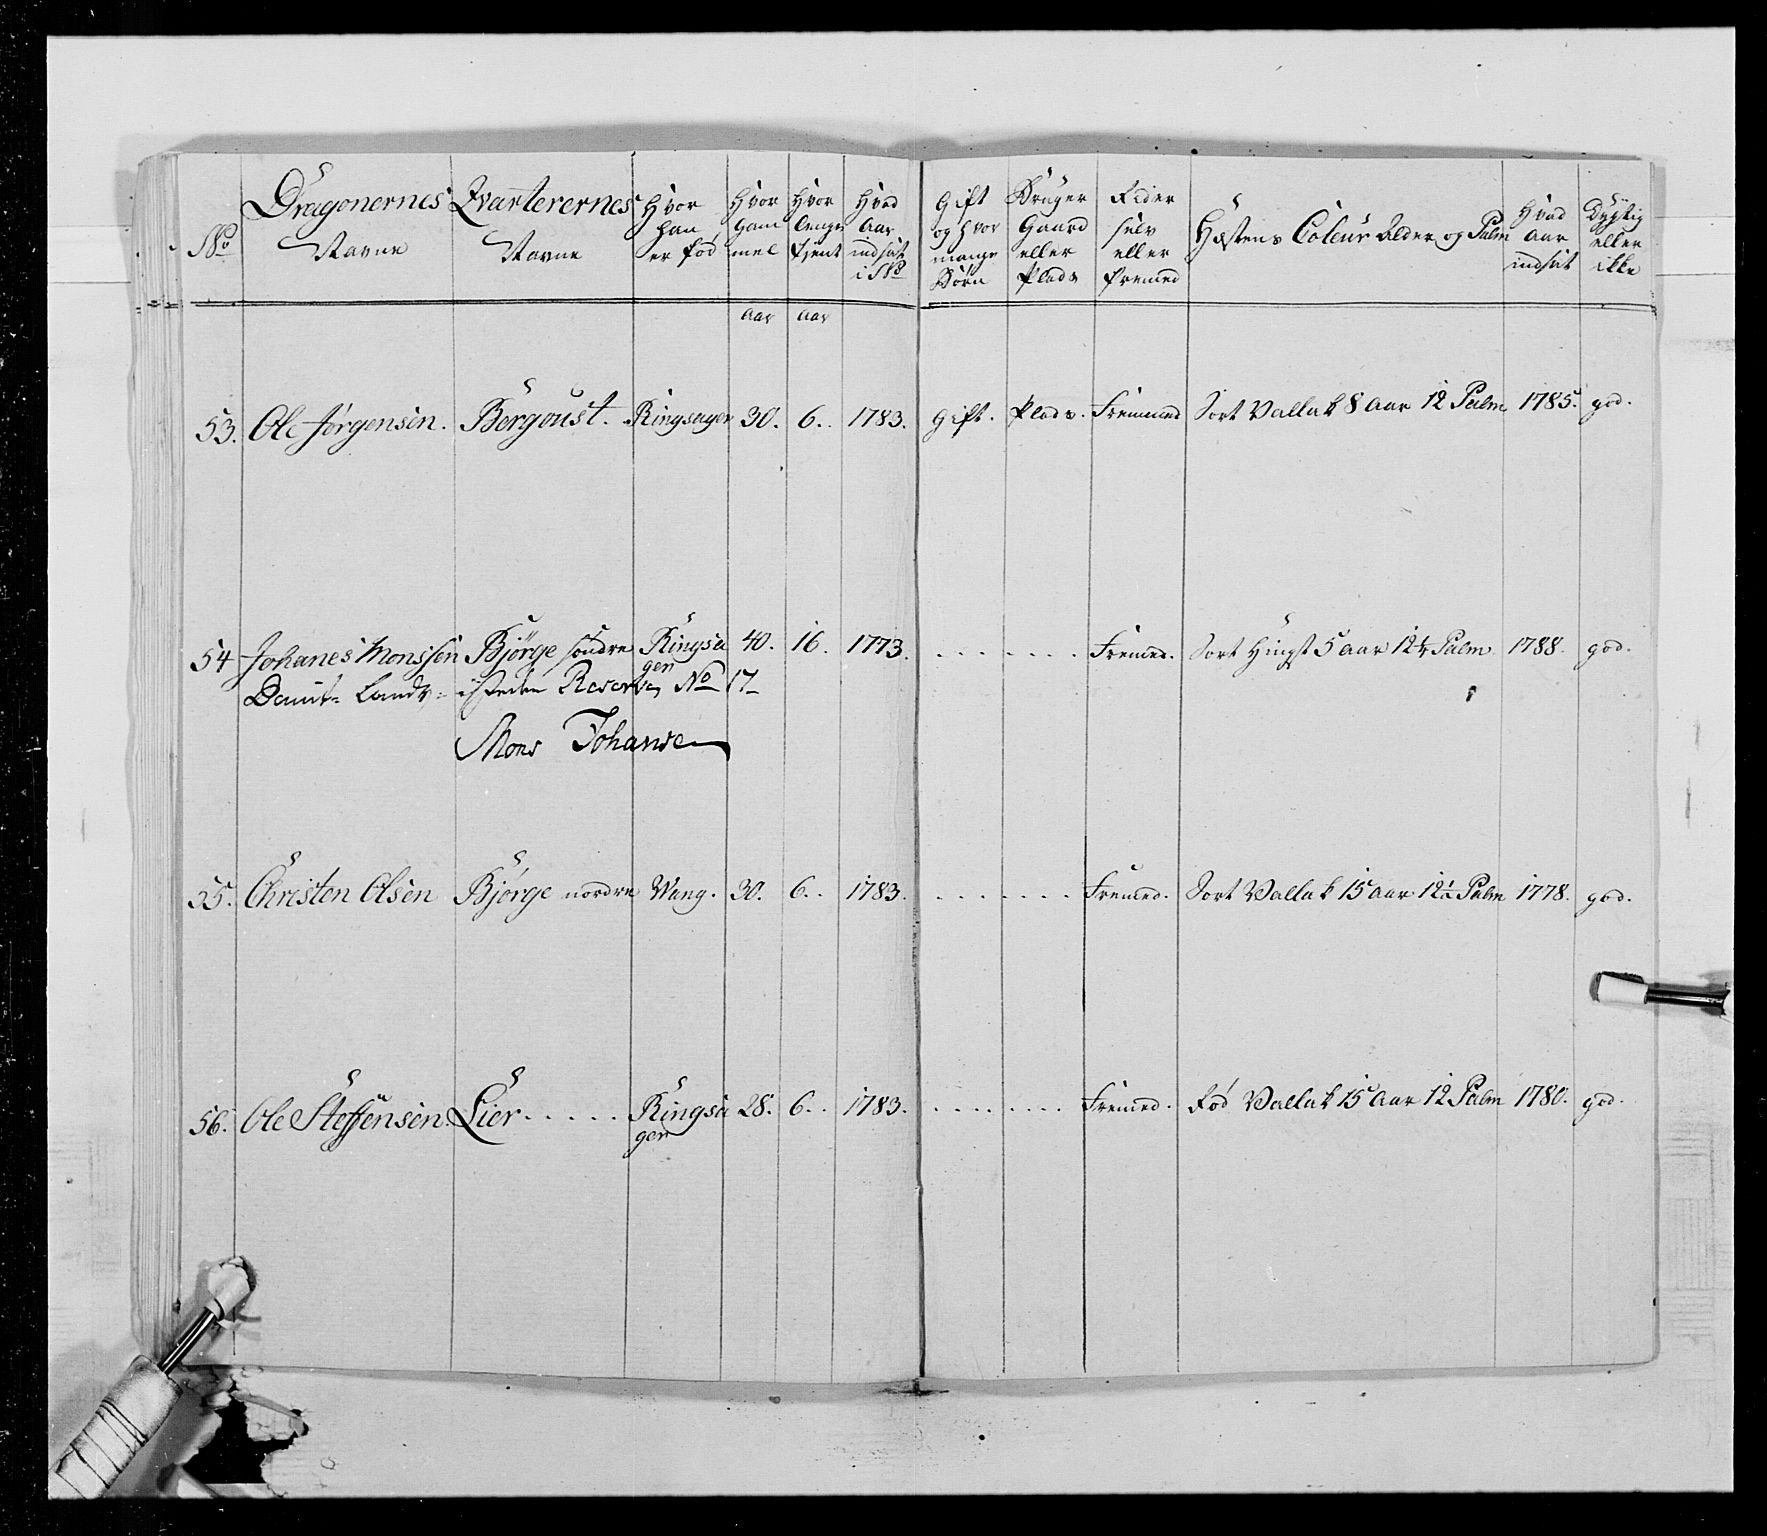 No | Dragonernes Navne | Qvarterernes Navne | Hvor han er fød | Hvor Gam mel | Hvor lenge tient | Hvad Aar indsat i No | Gift og hvor mange Børn | Bruger Gaard eller Plads | Rider selv eller fremed | Hæstens Coleur Alder og Palm | Hvad Aar indsat | Dygtig eller ikke
Aar | Aar
53. | Ole Jørgensen. | Bergoust. | Ringsager | 30. | 6. | 1783. | Gift. | Plads. | Fremmed | Sort Vallak 8 Aar 12 Palm | 1785. | god.
54 | Johanes Monssen | Bjørge søndre | Ringsa ger | 40. | 16. | 1773. | Fremed. | Sort Hingst 5 Aar 12 1/4 Palm | 1788. | god.
Demit= Landv= isteden Reserve No 17
Mons Johansen
55. | Christen Olsen | Bjørge nordre | Wang. | 30. | 6. | 1783. | Fremed. | Sort Vallak 15 Aar 12 1/2 Palm | 1778. | god.
56. | Ole Steffensen | Lier | Ringsa ger | 28. | 6. | 1783. | Fremed. | Rød Vallak 15 Aar 12 Palm | 1780. | god.